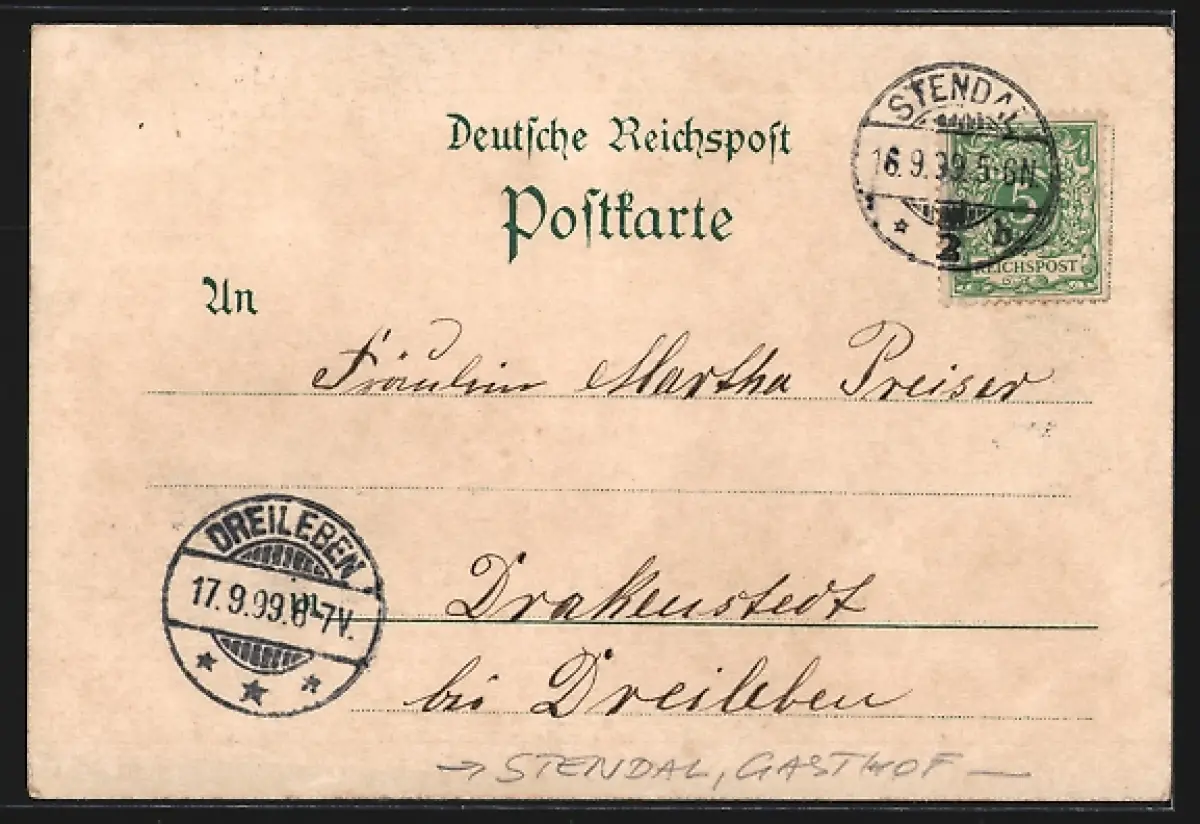 Deutsche Reichspost
Postkarte
STENDAL
16.9.99.5-6N
2 b
5
REICHSPOST
An
Fräulein Martha Preiser
DREILEBEN
17.9.99.6-7V.
Drakenstedt
bei Dreileben
→ STENDAL, GASTHOF —